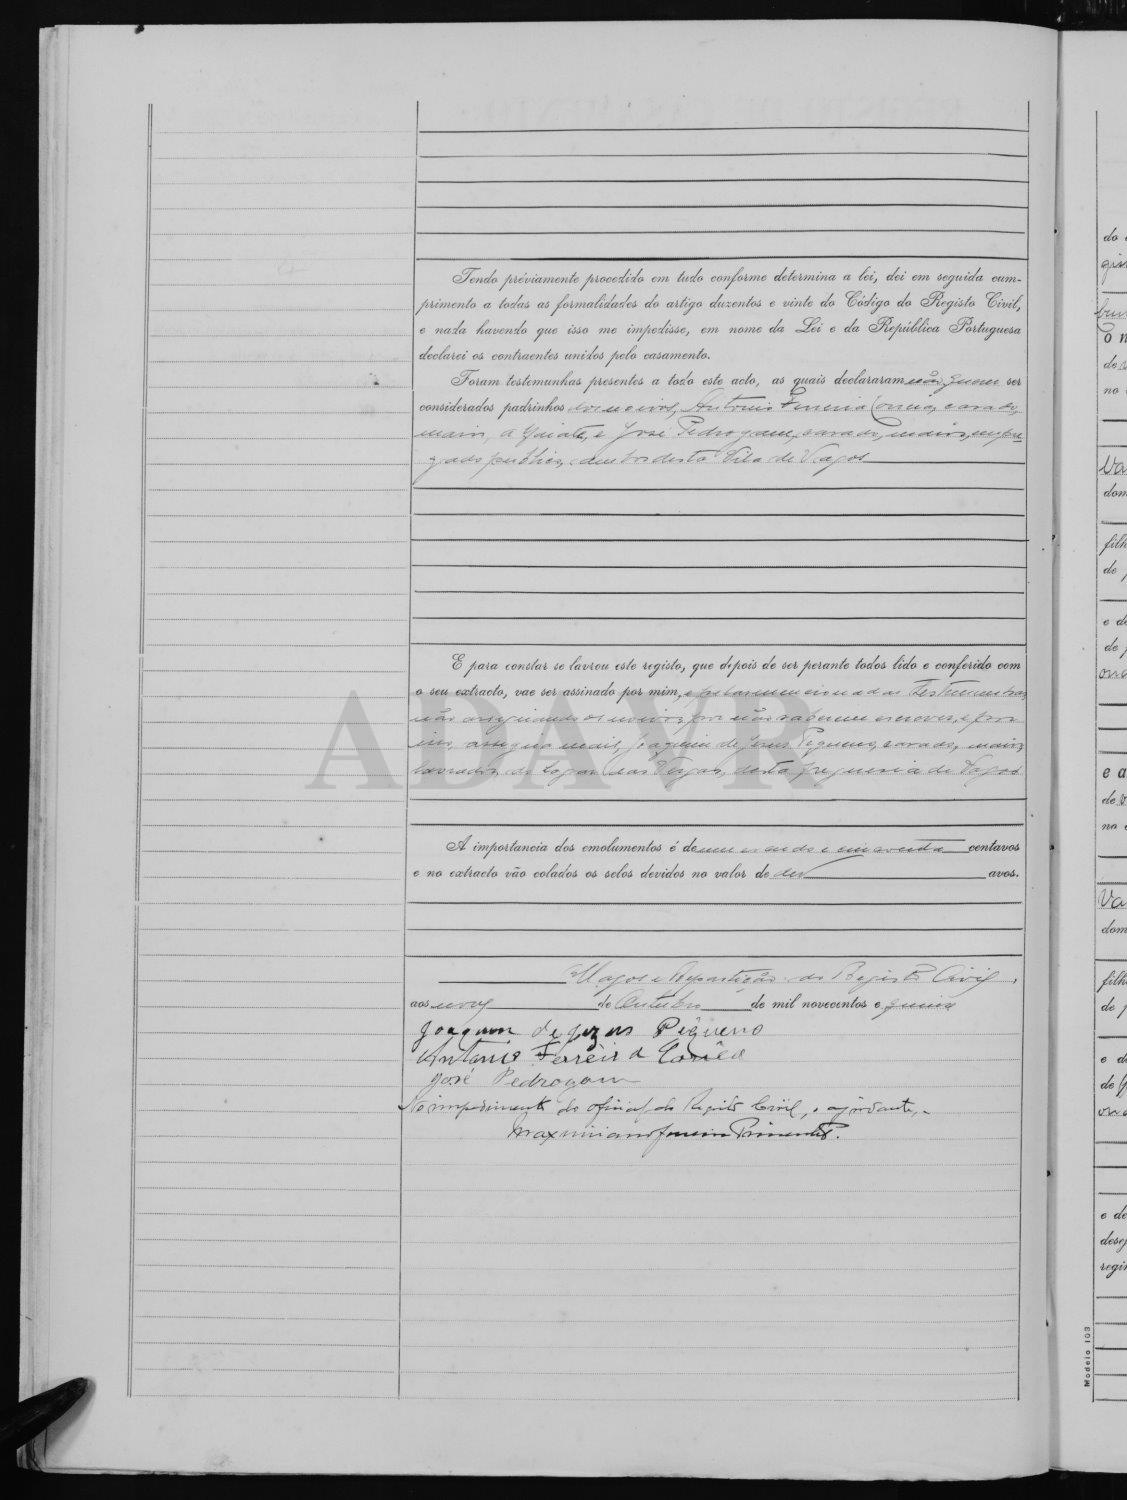 Tendo préviamente procedido em tudo conforme determina a lei, dei em seguida cum-
primento a todas as formalidades do artigo duzentos e vinte do Código do Registo Civil,
e nada havendo que isso me impedisse, em nome da Lei e da República Portuguesa
declarei os contraentes unidos pelo casamento.
Foram testemunhas presentes a todo este acto, as quais declararam não querer ser
considerados padrinhos dos noivos, Antonio Ferreira Corrêa, casado,
maior, alfaiate, e José Pedrogam, casado, maior, empre-
gado publico, ambos desta Vila de Vagos
E para constar se lavrou este registo, que depois de ser perante todos lido e conferido com
o seu extracto, vae ser assinado por mim, e pelas mencionadas testemunhas
não assignando os noivos por não saberem escrever, e por
assigna mais, Joaquim de Jesus Pequeno, casado, maior,
lavrador, do logar das Vergas, desta freguesia de Vagos
A importancia dos emolumentos é de um escudo e cincoenta centavos
e no extracto vão colados os selos devidos no valor de dez avos.
Vagos e Repartição do Registo Civil,
aos nove de Outubro de mil novecentos e quinze
Joaquim de jezus Pequeno
Antonio Ferreira Corrêa
José Pedrogam
No impedimento do oficial do Registo Civil, o ajudante,
Maximiano Pimentel.
ADAVR
Modelo 103